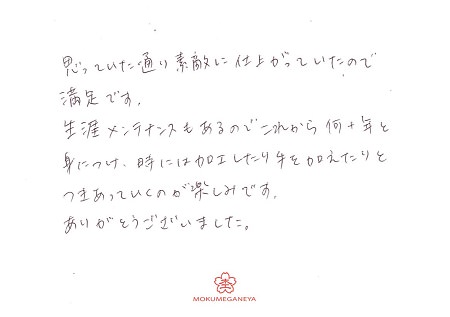 思っていた通り素敵に仕上がっていたので
満足です。
生涯メンテナンスもあるのでこれから何十年と
身につけ、時には加工したり手を加えたりと
つきあっていくのが楽しみです。
ありがとうございました。
MOKUMEGANEYA